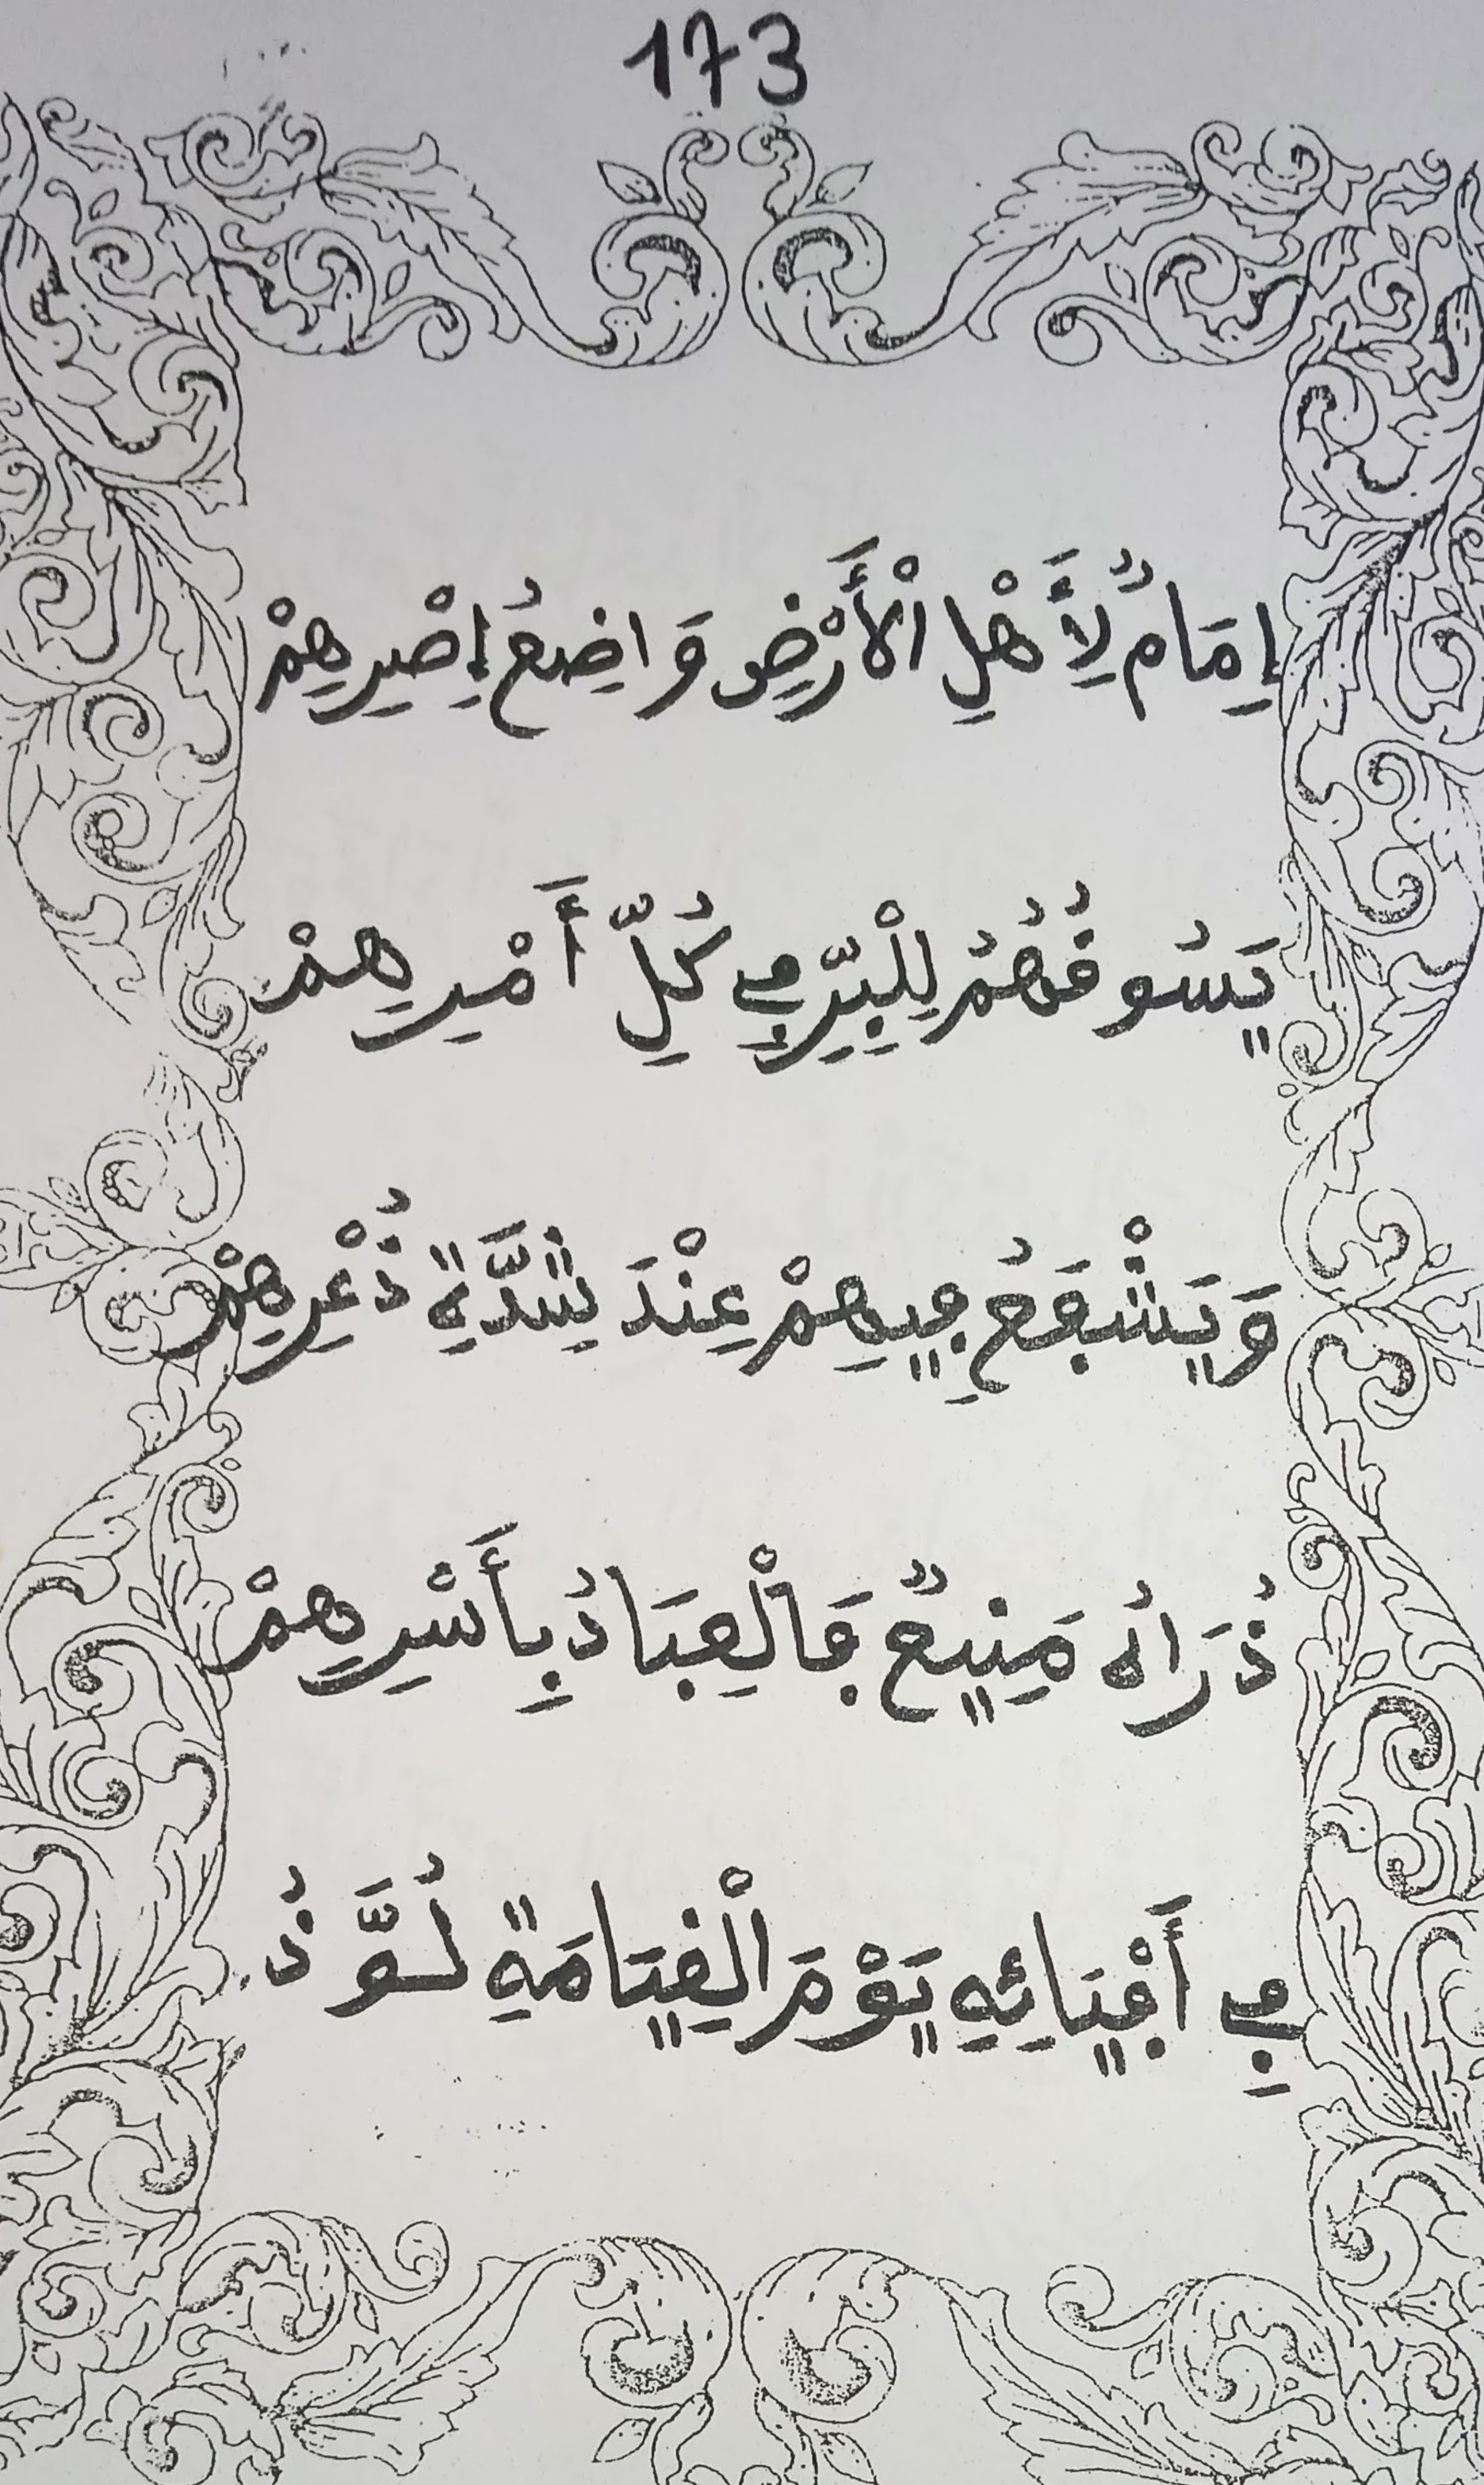 173
إِمَامٌ لِأَهْلِ الْأَرْضِ وَاضِعُ إِصْرِهِمْ
يَسُوڧُهُمُ لِلْبِرِّ ڢِي كُلِّ أَمْرِهِمْ
وَيَشْڢَعُ ڢِيهِمْ عِنْدَ شِدَّةِ ذُعْرِهِمْ
ذُرَاهُ مَنِيعٌ ڢَالْعِبَادُ بِأَسْرِهِمْ
ڢِي أَڢْيَائِهِ يَوْمَ الْڧِيَامَةِ لُوَّذُ